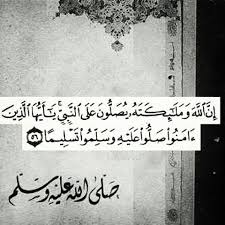 إِنَّ ٱللَّهَ وَمَلَـٰٓئِكَتَهُۥ يُصَلُّونَ عَلَى ٱلنَّبِىِّ ۚ يَـٰٓأَيُّهَا ٱلَّذِينَ
ءَامَنُوا۟ صَلُّوا۟ عَلَيْهِ وَسَلِّمُوا۟ تَسْلِيمًا ﴿٥٦﴾
صلى الله عليه وسلم